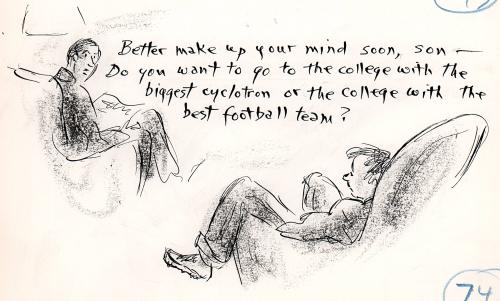 Better make up your mind soon, son —
Do you want to go to the college with the
biggest cyclotron or the college with the
best football team?
74